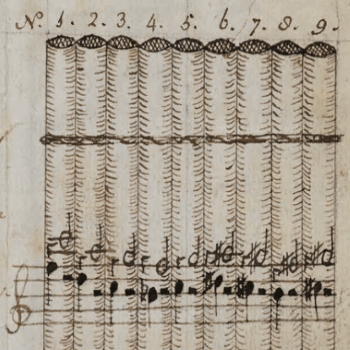 N. 1. 2. 3. 4. 5. 6. 7. 8. 9.